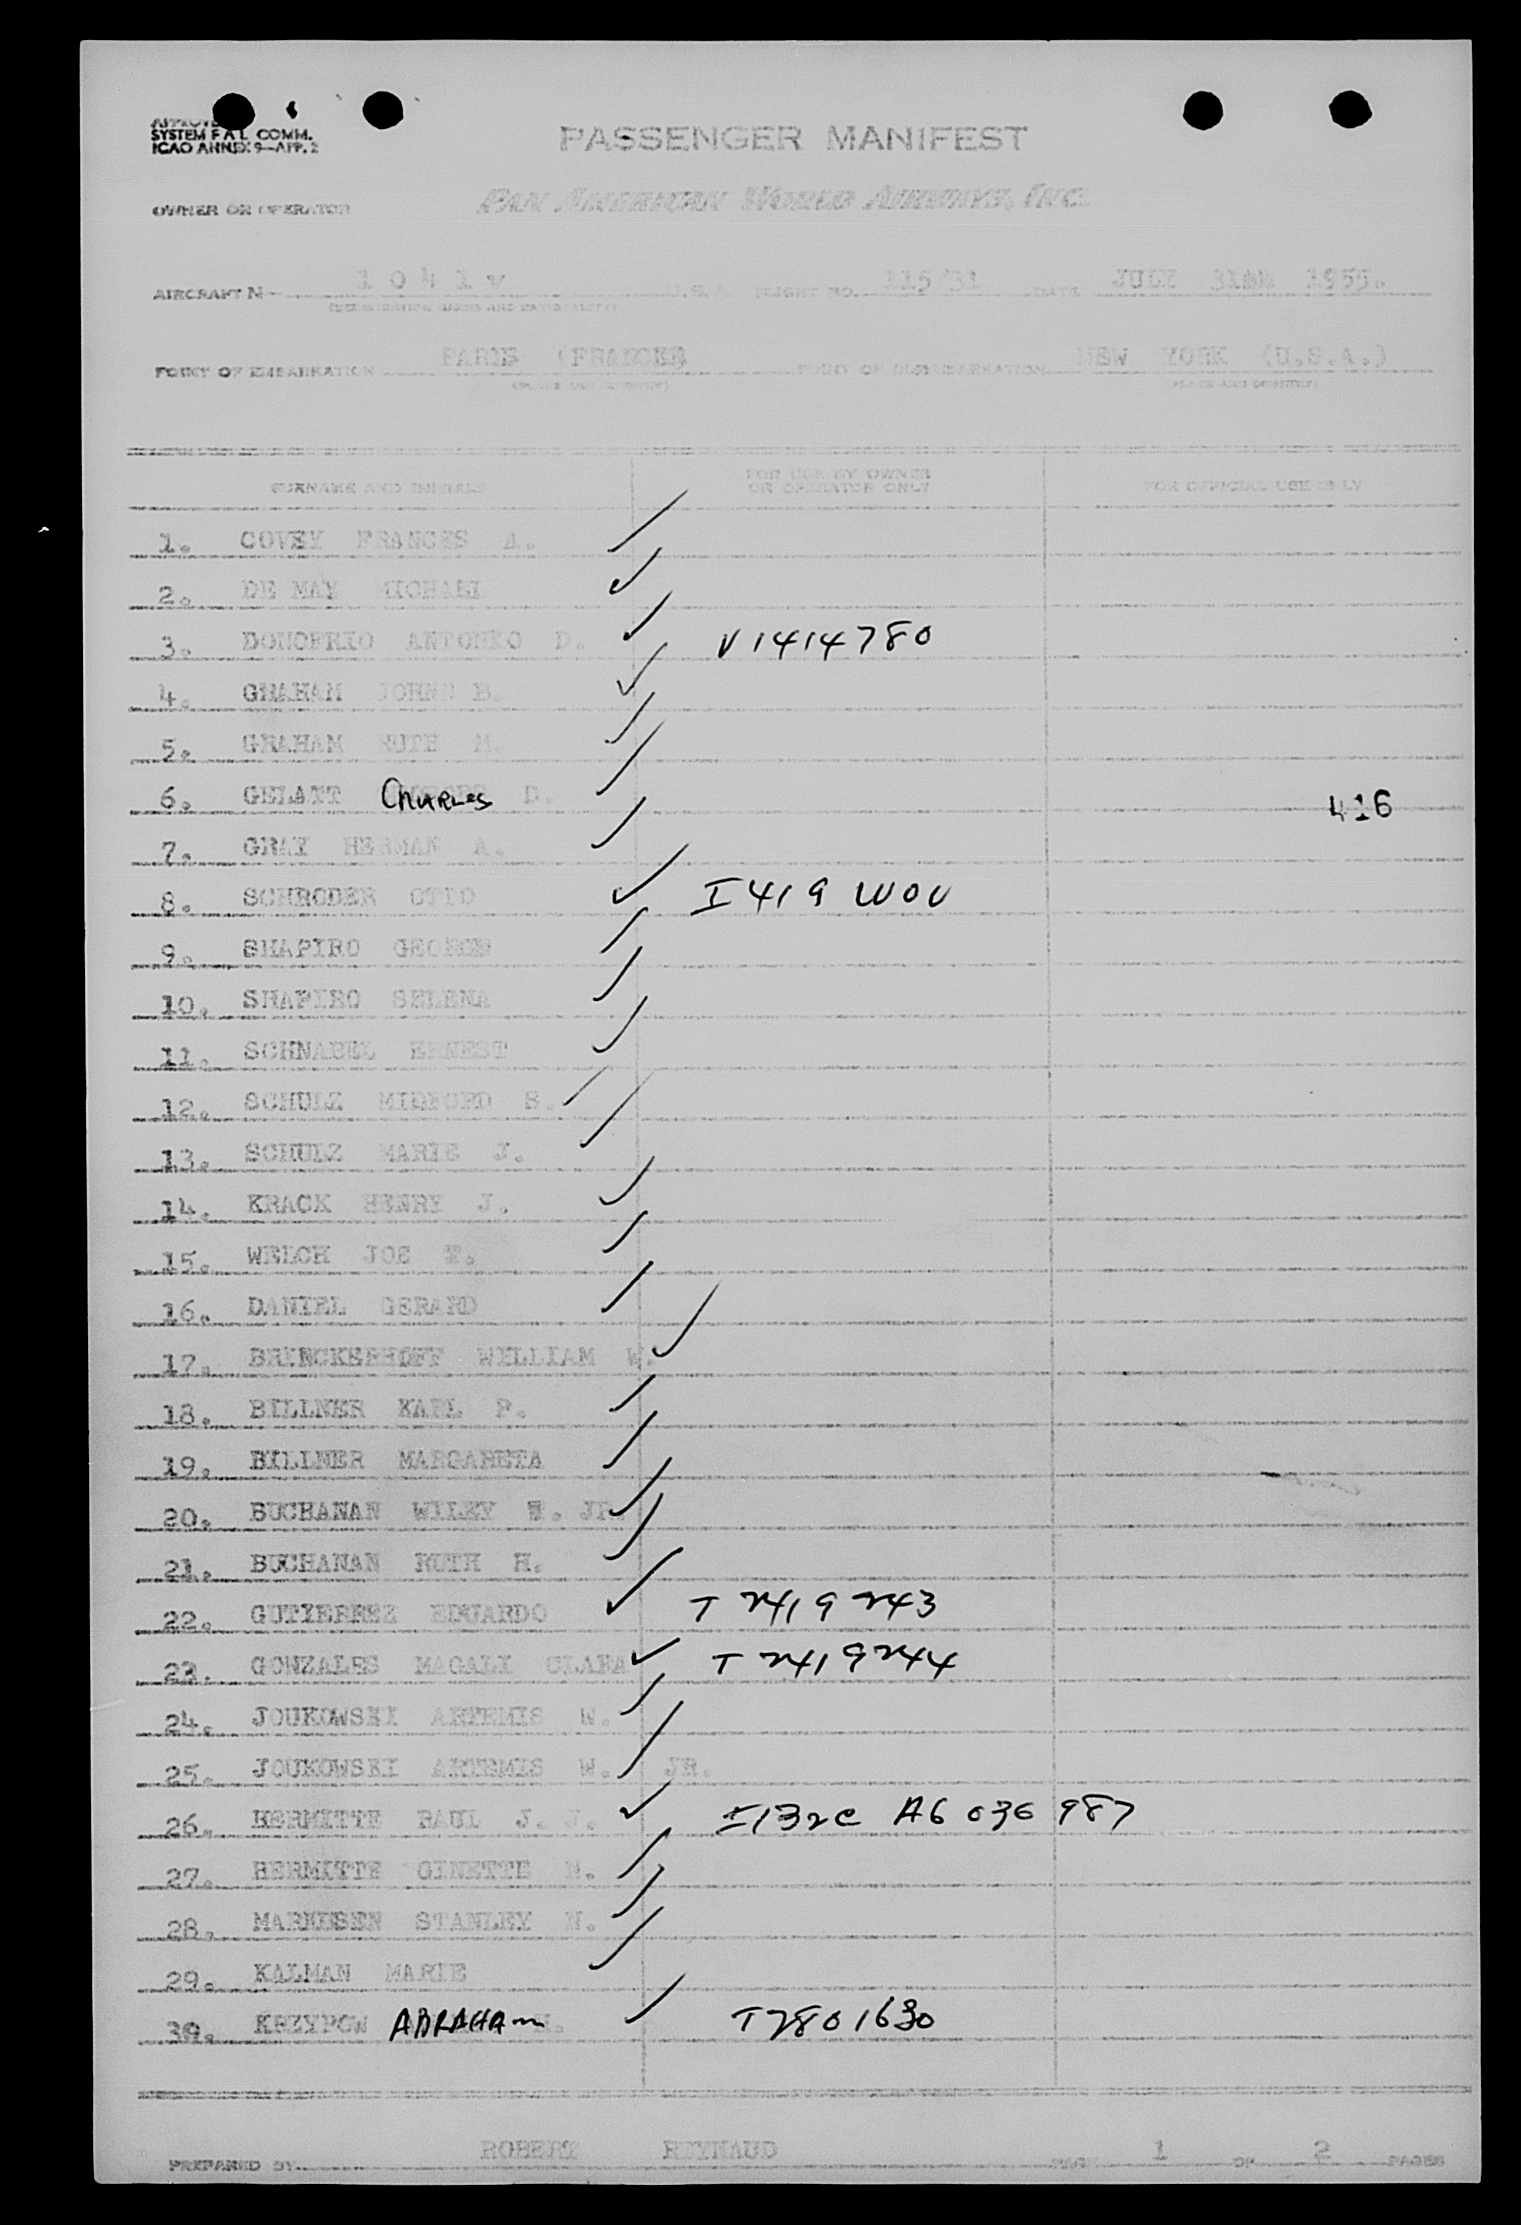 SYSTEM F A L COMM.
ICAO ANNEX 9—APP. 2
PASSENGER MANIFEST
OWNER OR OPERATOR PAN AMERICAN WORLD AIRWAYS, INC.
AIRCRAFT N 1041V U.S.A. FLIGHT NO. 115/31 DATE JULY 1955.
(REGISTRATION MARKS AND NATIONALITY)
POINT OF EMBARKATION PARIS (FRANCE) POINT OF DISEMBARKATION NEW YORK (U.S.A.)
(PLACE AND COUNTRY) (PLACE AND COUNTRY)
SURNAME AND INITIALS FOR USE BY OWNER OR OPERATOR ONLY FOR OFFICIAL USE ONLY
1. COVEY FRANCES A.
2. DE MAY
3. DONOFRIO D. V1414780
4. GRAHAM B.
5. GRAHAM RUTH M.
6. GELATT CHARLES D. 416
7. GRAY HERMAN A.
8. SCHRODER OTTO I419 WOV
9. SHAPIRO GEORGE
10. SHAPIRO SELENA
11. SCHNABEL ERNEST
12. SCHULZ S.
13. SCHULZ MARIE J.
14. KRACK HENRY J.
15. WELCH JOE T.
16. DANIEL GERARD
17. BRINCKERHOFF WILLIAM W.
18. BILLNER KARL P.
19. BILLNER MARGARETA
20. BUCHANAN WILEY T. JR.
21. BUCHANAN RUTH H.
22. GUTIERREZ EDUARDO T 2419243
23. GONZALES MAGALI CLARA T 2419244
24. JOUKOWSKI ARTEMIS W.
25. JOUKOWSKI ARTEMIS W. JR.
26. HERMITTE PAUL J. J. I132C A6 036 987
27. HERMITTE GINETTE M.
28. STANLEY N.
29. KALMAN MARIE
30. KRZYPOW ABRAHAM H. T2801630
PREPARED BY ROBERT REYNAUD PAGE 1 OF 2 PAGES